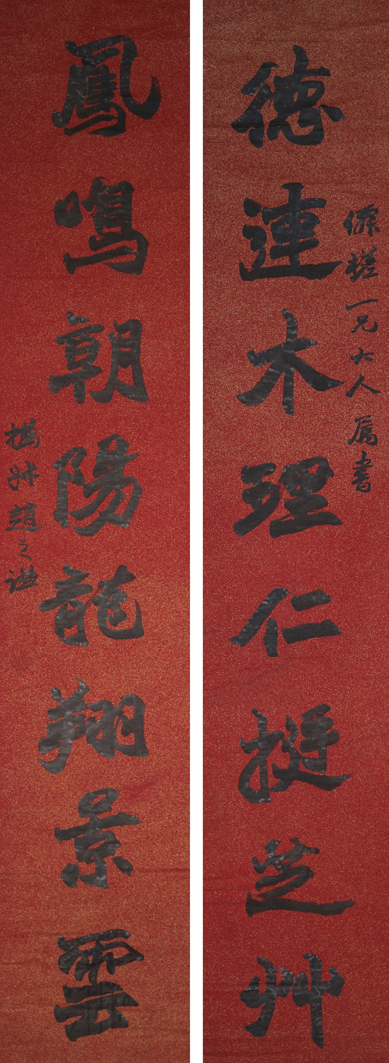 僊槎一兄大人屬書
德連木理仁挺芝艸
鳳鳴朝陽龍翔景雲
撝叔趙之謙